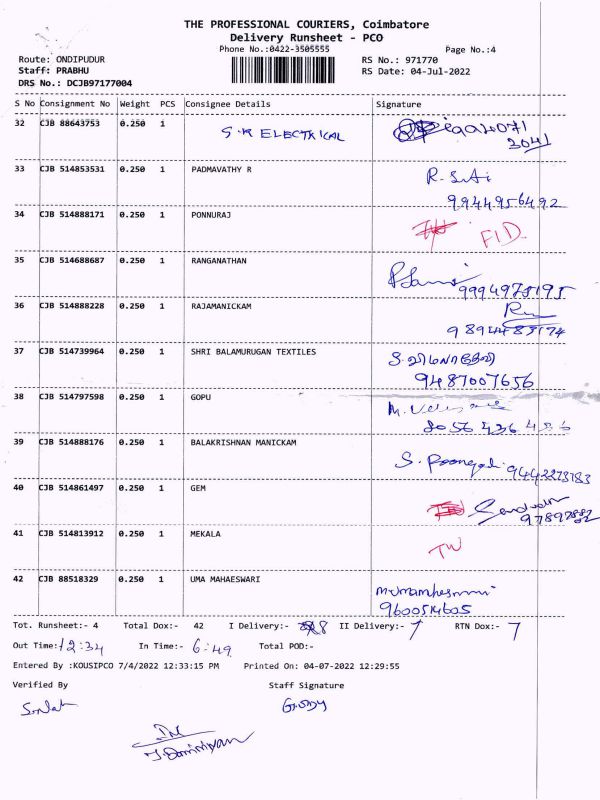 THE PROFESSIONAL COURIERS, Coimbatore
Delivery Runsheet - PCO
Phone No.:0422-3505555
Page No.:4
Route: ONDIPUDUR
RS No.: 971770
Staff: PRABHU
RS Date: 04-Jul-2022
DRS No.: DCJB97177004
S No Consignment No Weight PCS Consignee Details Signature
32 CJB 88643753 0.250 1 S.R ELECTRICAL
2041
33 CJB 514853531 0.250 1 PADMAVATHY R
9944956492
34 CJB 514888171 0.250 1 PONNURAJ
35 CJB 514688687 0.250 1 RANGANATHAN
9994975195
36 CJB 514888228 0.250 1 RAJAMANICKAM
9894483174
37 CJB 514739964 0.250 1 SHRI BALAMURUGAN TEXTILES
9487007656
38 CJB 514797598 0.250 1 GOPU
39 CJB 514888176 0.250 1 BALAKRISHNAN MANICKAM
S. 9442273783
40 CJB 514861497 0.250 1 GEM
41 CJB 514813912 0.250 1 MEKALA
TW
42 CJB 88518329 0.250 1 UMA MAHAESWARI
9600514605
Tot. Runsheet:- 4 Total Dox:- 42 I Delivery:- 8 II Delivery:- 7 RTN Dox:- 7
Out Time:12:34 In Time:- 6:49 Total POD:-
Entered By :KOUSIPCO 7/4/2022 12:33:15 PM Printed On: 04-07-2022 12:29:55
Verified By Staff Signature